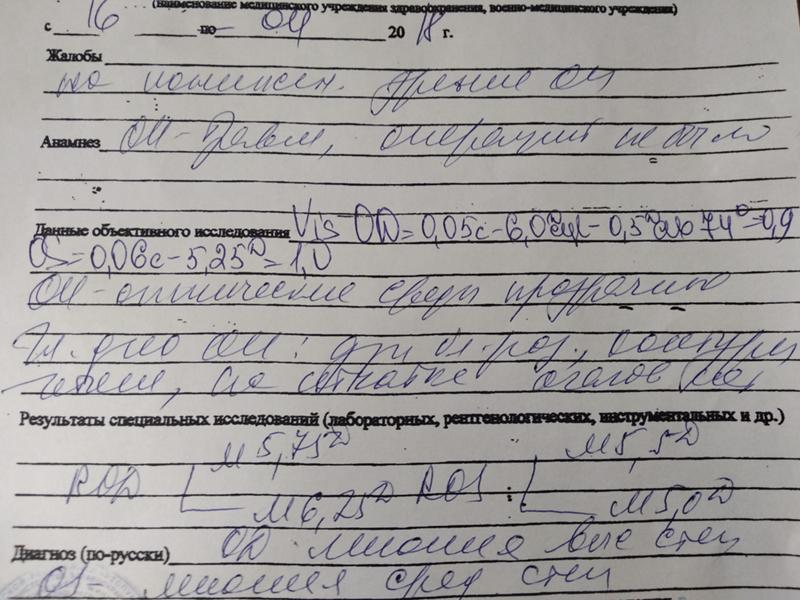 (наименование медицинского учреждения здравоохранения, военно-медицинского учреждения)
с 16 по ОИ 20 18 г.
Жалобы
на понижен. зрение ОИ
Анамнез ОИ - травм, операций не было
Данные объективного исследования Vis OD = 0,05 с - 6,0 - 0,5ᴰ 74° = 0,9
OS = 0,06 с - 5,25ᴰ = 1,0
ОИ - оптические среды прозрачны
Гл. дно ОИ: дзн бл-роз., контуры
на сетчатке очагов нет
Результаты специальных исследований (лабораторных, рентгенологических, инструментальных и др.)
М 5,75ᴰ М 5,5ᴰ
ROD ROS
М 6,25ᴰ М 5,0ᴰ
Диагноз (по-русски) OD миопия выс степ
OS миопия сред степ